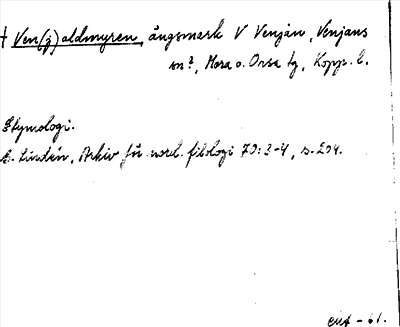 † Ven(j)aldmyren, ängsmark V Venjan, Venjans
sn?, Mora o. Orsa tg, Kopp. l.
Etymologi.
B. Lindén, Arkiv för nord. filologi 70:3-4, s. 204.
-61.